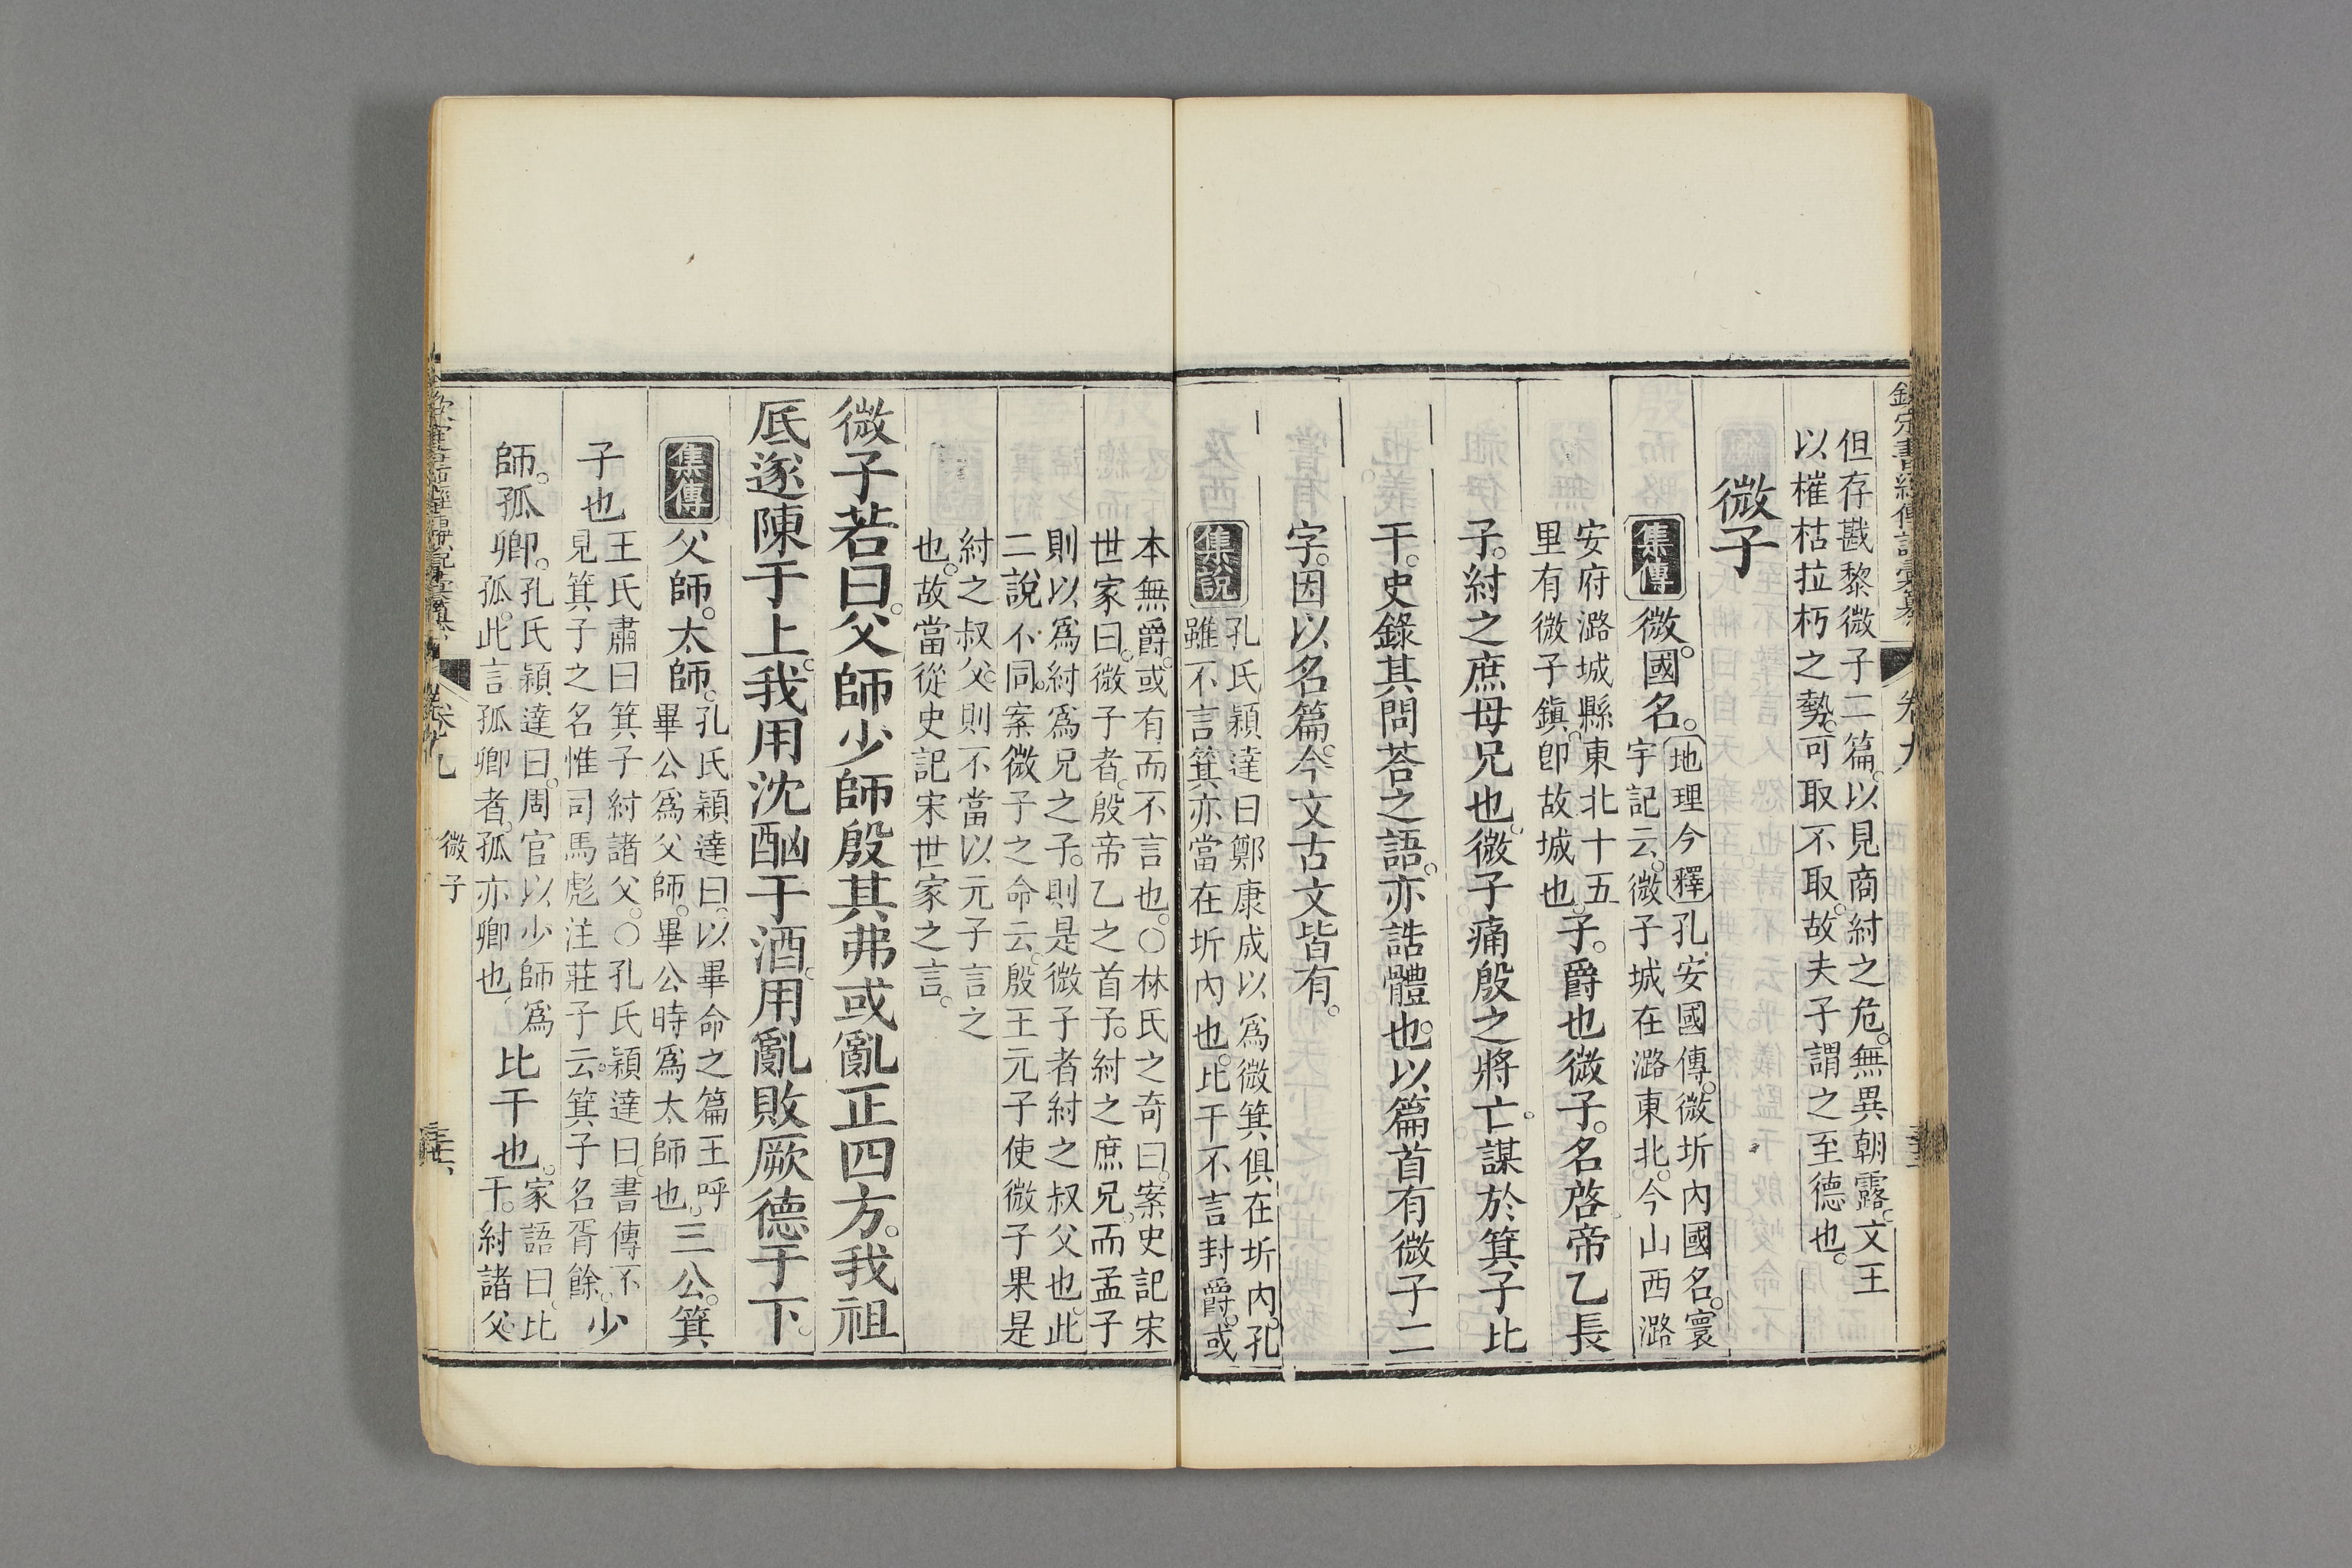 但存戡黎微子二篇以見商紂之危無異朝露文王
以摧枯拉朽之勢可取不取故夫子謂之至德也
微子
集傳 微國名 地理今釋 孔安國傳微圻內國名寰
宇記云微子城在潞東北今山西潞
安府潞城縣東北十五
里有微子鎭卽故城也
子爵也微子名啓帝乙長
子紂之庶母兄也微子痛殷之將亡謀於箕子比
干史錄其問荅之語亦誥體也以篇首有微子二
字因以名篇今文古文皆有
集說 孔氏穎達曰鄭康成以爲微箕俱在圻內孔
雖不言箕亦當在圻內也比干不言封爵或
本無爵或有而不言也○林氏之奇曰案史記宋
世家曰微子者殷帝乙之首子紂之庶兄而孟子
則以爲紂爲兄之子則是微子者紂之叔父也此
二說不同案微子之命云殷王元子使微子果是
紂之叔父則不當以元子言之
也故當從史記宋世家之言
微子若曰父師少師殷其弗或亂正四方我祖
厎遂陳于上我用沈酗于酒用亂敗厥德于下
集傳 父師太師 孔氏穎達曰以畢命之篇王呼
畢公爲父師畢公時爲太師也
三公箕
子也 王氏肅曰箕子紂諸父○孔氏穎達曰書傳不
見箕子之名惟司馬彪注莊子云箕子名胥餘
少
師孤卿 孔氏穎達曰周官以少師爲
孤此言孤卿者孤亦卿也
比干也 家語曰比
干紂諸父
卷九
微子